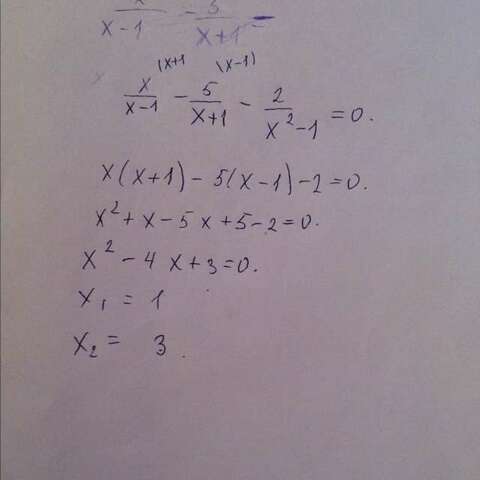 x/(x-1) - 5/(x+1) -
(x+1 (x-1)
x/(x-1) - 5/(x+1) - 2/(x²-1) = 0.
x(x+1) - 5(x-1) - 2 = 0.
x² + x - 5x + 5 - 2 = 0.
x² - 4x + 3 = 0.
x₁ = 1
x₂ = 3.